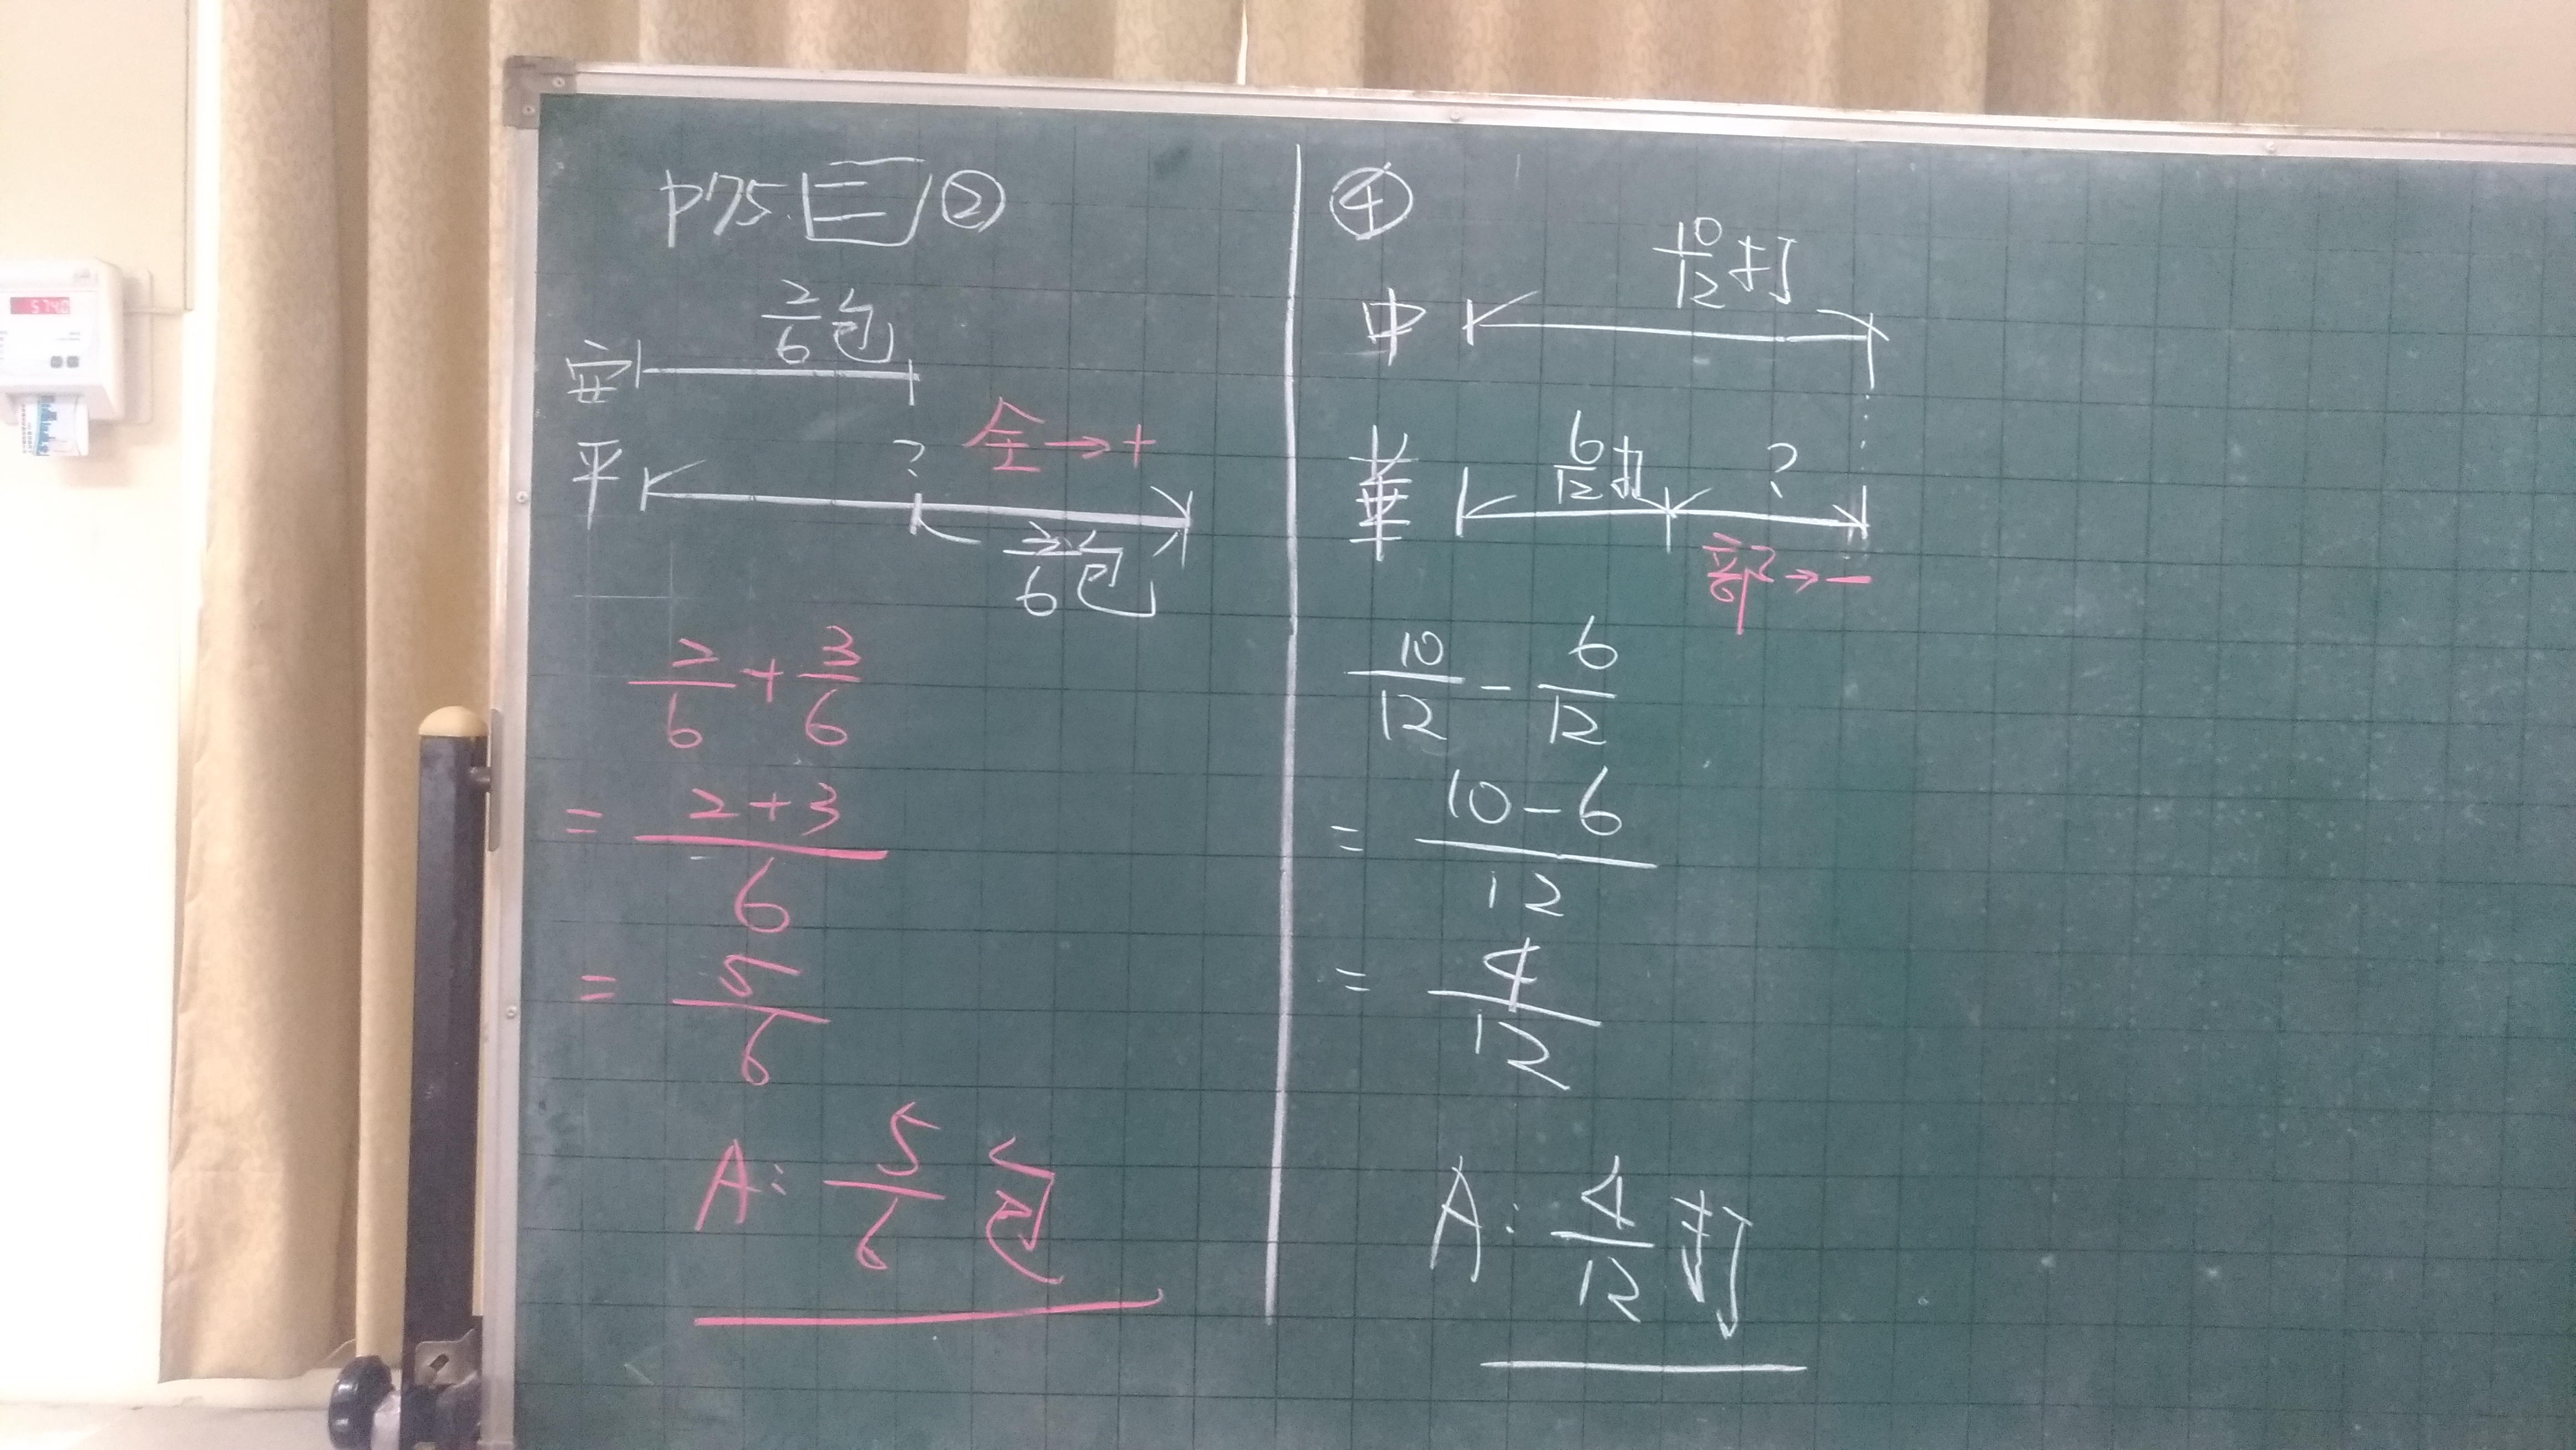 p75. 三 ②
2/6 包
安
全→+
平 ?
3/6 包
2/6 + 3/6
= 2+3/6
= 5/6
A: 5/6 包
④
10/12 打
中
華 6/12 打 ?
部→−
10/12 − 6/12
= 10−6/12
= 4/12
A: 4/12 打